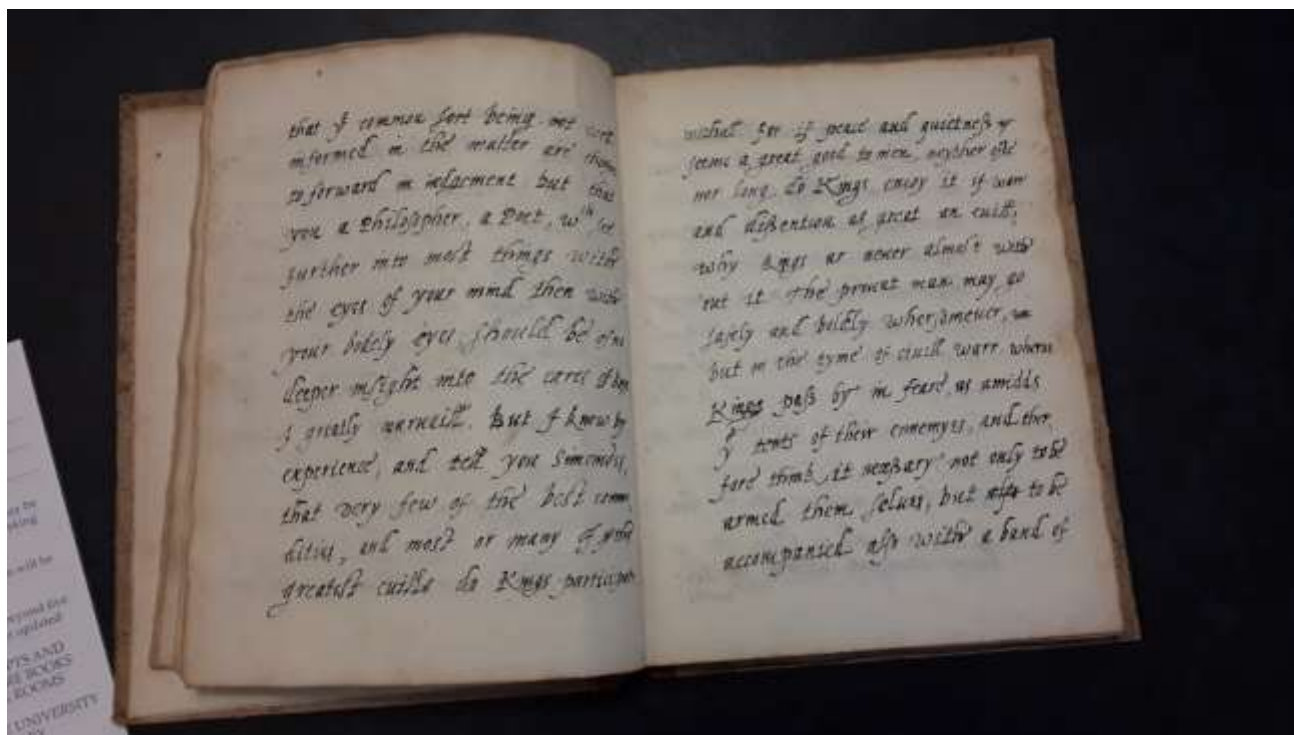 that yͤ common sort being not
informed in the matter are
to forward in iudgement but that
you a Philosopher, a Poet, wͨͪ
further into most things with
the eyes of your mind then with
your bodely eyes should be of no
deeper insight into the cares of
I greatly marveill. But I know by
experience, and tell you Simonides,
that very few of the best comm
dities, and most or many of
greatest euills do Kings participate
withall for if peace and quietness
seeme a great good to men, neyther
nor long do Kings enioy it if warr
and dissention as great an euill,
why Kings ar never almost with
out it The privat man may go
safely and boldly whersoneuer,
but in the tyme of ciuill warr wheras
Kings pass by in feare, as amidds
yͤ tents of their ennemyes, and ther
fore think it nessary not only to be
armed them selues, but also to be
accompanied also with a band of
by
oking
will be
beyond five
updated
PTS AND
BOOKS
ROOMS
UNIVERSITY